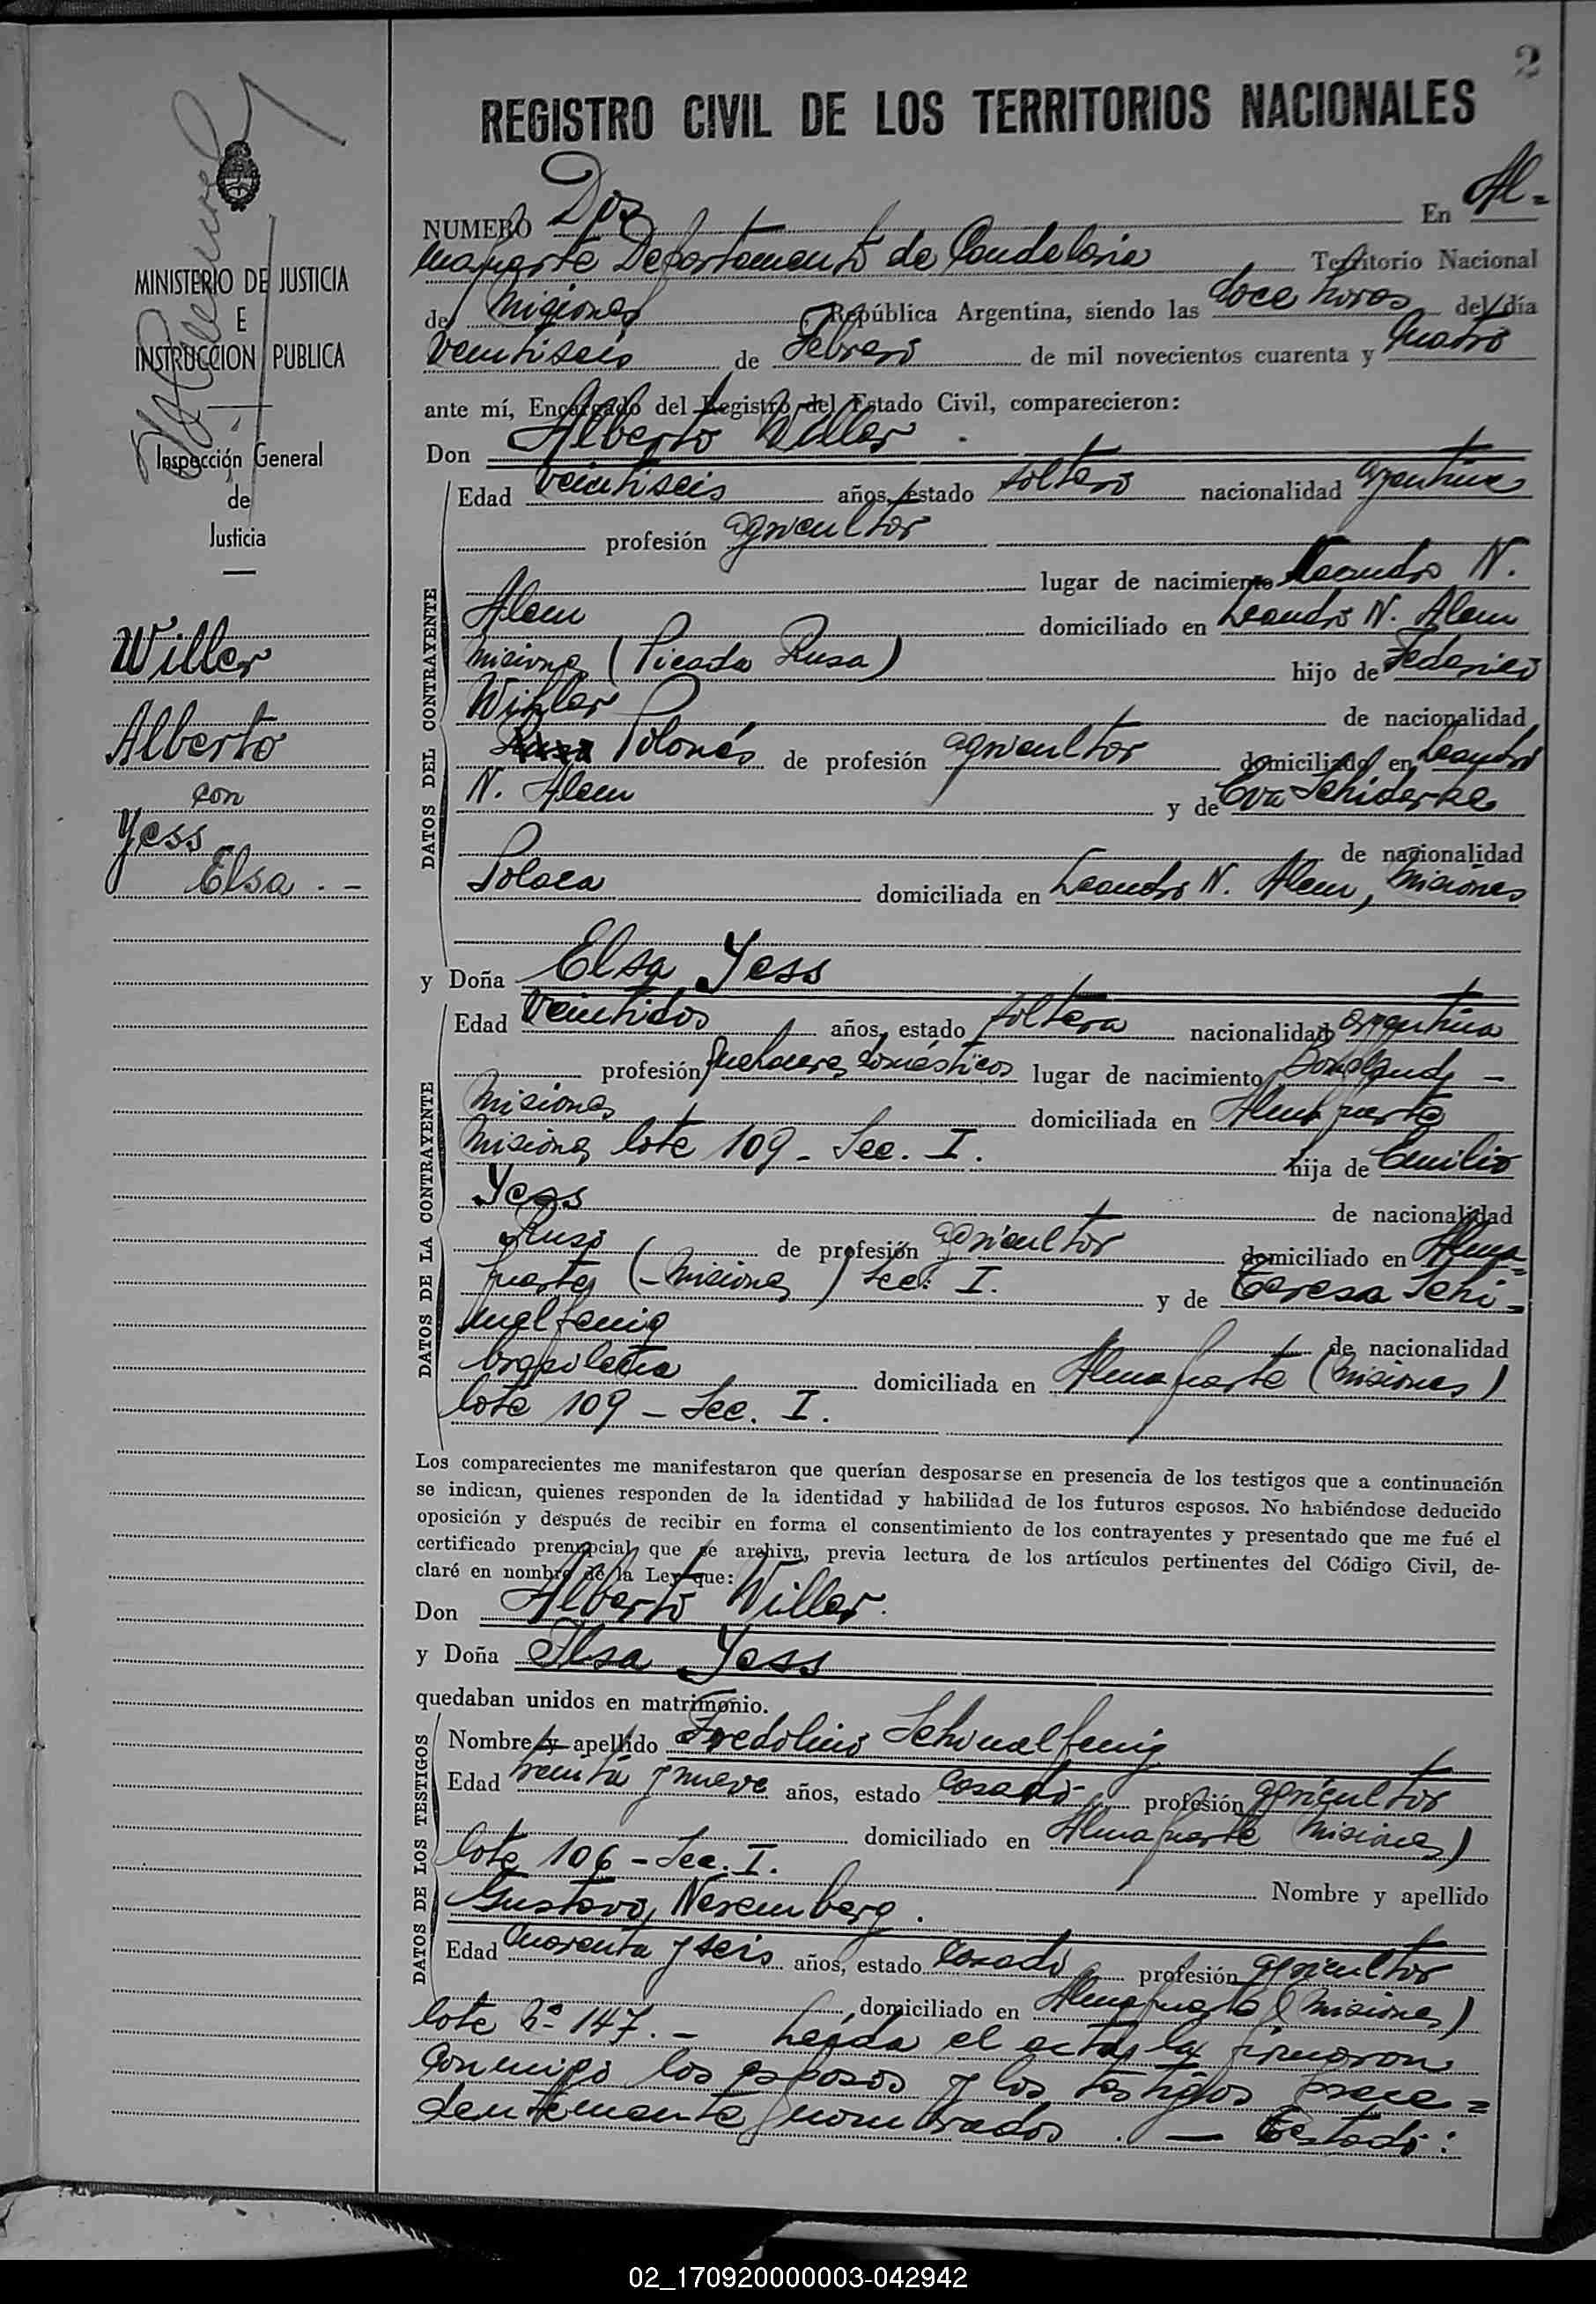 2
REGISTRO CIVIL DE LOS TERRITORIOS NACIONALES
NUMERO Dos En Al=
mafuerte Departamento de Candelaria Territorio Nacional
de Misiones, República Argentina, siendo las doce horas del día
veintiseis de Febrero de mil novecientos cuarenta y cuatro
ante mí, Encargado del Registro del Estado Civil, comparecieron:
Don Alberto Willer
Edad veintiseis años, estado soltero nacionalidad argentina
profesión agricultor
lugar de nacimiento Leandro N.
Alem domiciliado en Leandro N. Alem
Misiones (Picada Rusa) hijo de Federico
Willer de nacionalidad
Polonés de profesión agricultor domiciliado en Leandro
N. Alem y de Eva Schiderke
de nacionalidad
Polaca domiciliada en Leandro N. Alem, Misiones
y Doña Elsa Yess
Edad veintidos años, estado soltera nacionalidad argentina
profesión quehaceres domésticos lugar de nacimiento Bonpland -
Misiones domiciliada en Almafuerte
Misiones lote 109 - Sec. I. hija de Emilio
Yess de nacionalidad
Ruso de profesión agricultor domiciliado en Alma=
fuerte (Misiones) Sec: I. y de Teresa Schi=
melfenig de nacionalidad
brasileña domiciliada en Almafuerte (Misiones)
lote 109 - Sec. I.
DATOS DEL CONTRAYENTE
DATOS DE LA CONTRAYENTE
Los comparecientes me manifestaron que querían desposarse en presencia de los testigos que a continuación
se indican, quienes responden de la identidad y habilidad de los futuros esposos. No habiéndose deducido
oposición y después de recibir en forma el consentimiento de los contrayentes y presentado que me fué el
certificado prenupcial que se archiva, previa lectura de los artículos pertinentes del Código Civil, de-
claré en nombre de la Ley que:
Don Alberto Willer.
y Doña Elsa Yess
quedaban unidos en matrimonio.
Nombre y apellido Fredolino Schimelfenig
Edad treinta y nueve años, estado casado profesión agricultor
domiciliado en Almafuerte Misiones)
lote 106 - Sec. I. Nombre y apellido
Gustavo Neremberg.
Edad Cuarenta y seis años, estado casado profesión agricultor
domiciliado en Almafuerte (Misiones)
lote Nº 147. - Leída el acta, la firmaron
conmigo los esposos y los testigos prece=
dentemente nombrados. - Testado:
DATOS DE LOS TESTIGOS
MINISTERIO DE JUSTICIA
E
INSTRUCCION PUBLICA
Inspección General
de
Justicia
Willer
Alberto
con
Yess
Elsa. -
02_170920000003-042942